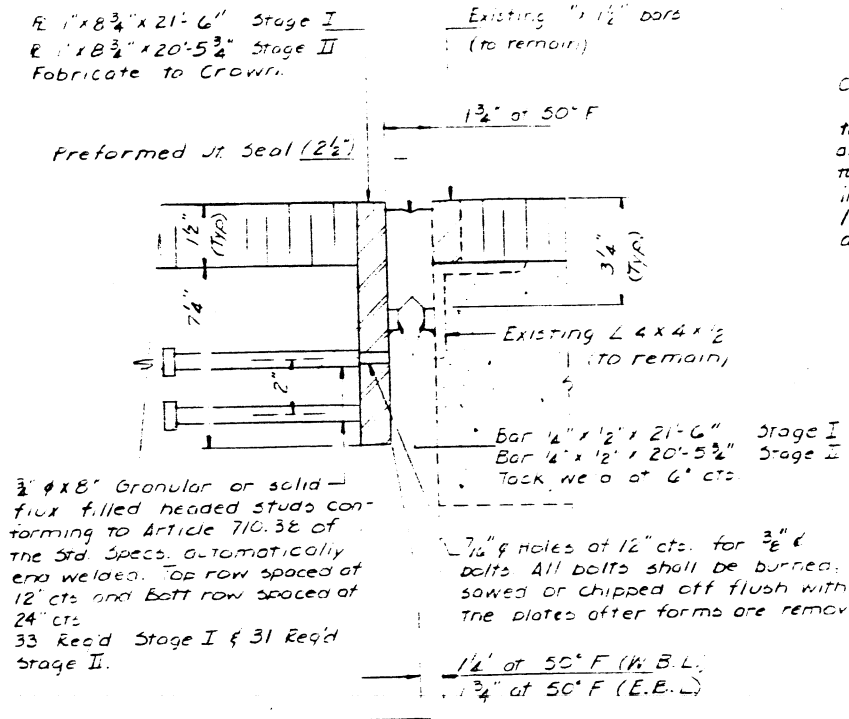 ℄ 1" x 8 3/4" x 21'-6" Stage I
℄ 1" x 8 3/4" x 20'-5 3/4" Stage II
Fabricate to Crown.
Existing " x 1 1/2" bars
(to remain)
1 3/4" at 50° F
Preformed Jt. Seal (2 1/2")
1 1/2"
(Typ.)
3 1/4"
(Typ.)
7 1/4"
2"
Existing L 4 x 4 x 1/2
(to remain)
Bar 1/4" x 1/2" x 21'-6" Stage I
Bar 1/4" x 1/2" x 20'-5 3/4" Stage II
Tack at 6" cts.
3/4" ϕ x 8" Granular or solid
flux filled headed studs con-
forming to Article 710.38 of
the Std. Specs. automatically
end welded. Top row spaced at
12" cts and Bott row spaced at
24" cts
33 Req'd Stage I & 31 Req'd
Stage II.
7/16" ϕ Holes at 12" cts. for 3/8" ϕ
bolts. All bolts shall be burned,
sawed or chipped off flush with
the plates after forms are remov
1 1/4" at 50° F (W.B.L.)
1 3/4" at 50° F (E.B.L.)